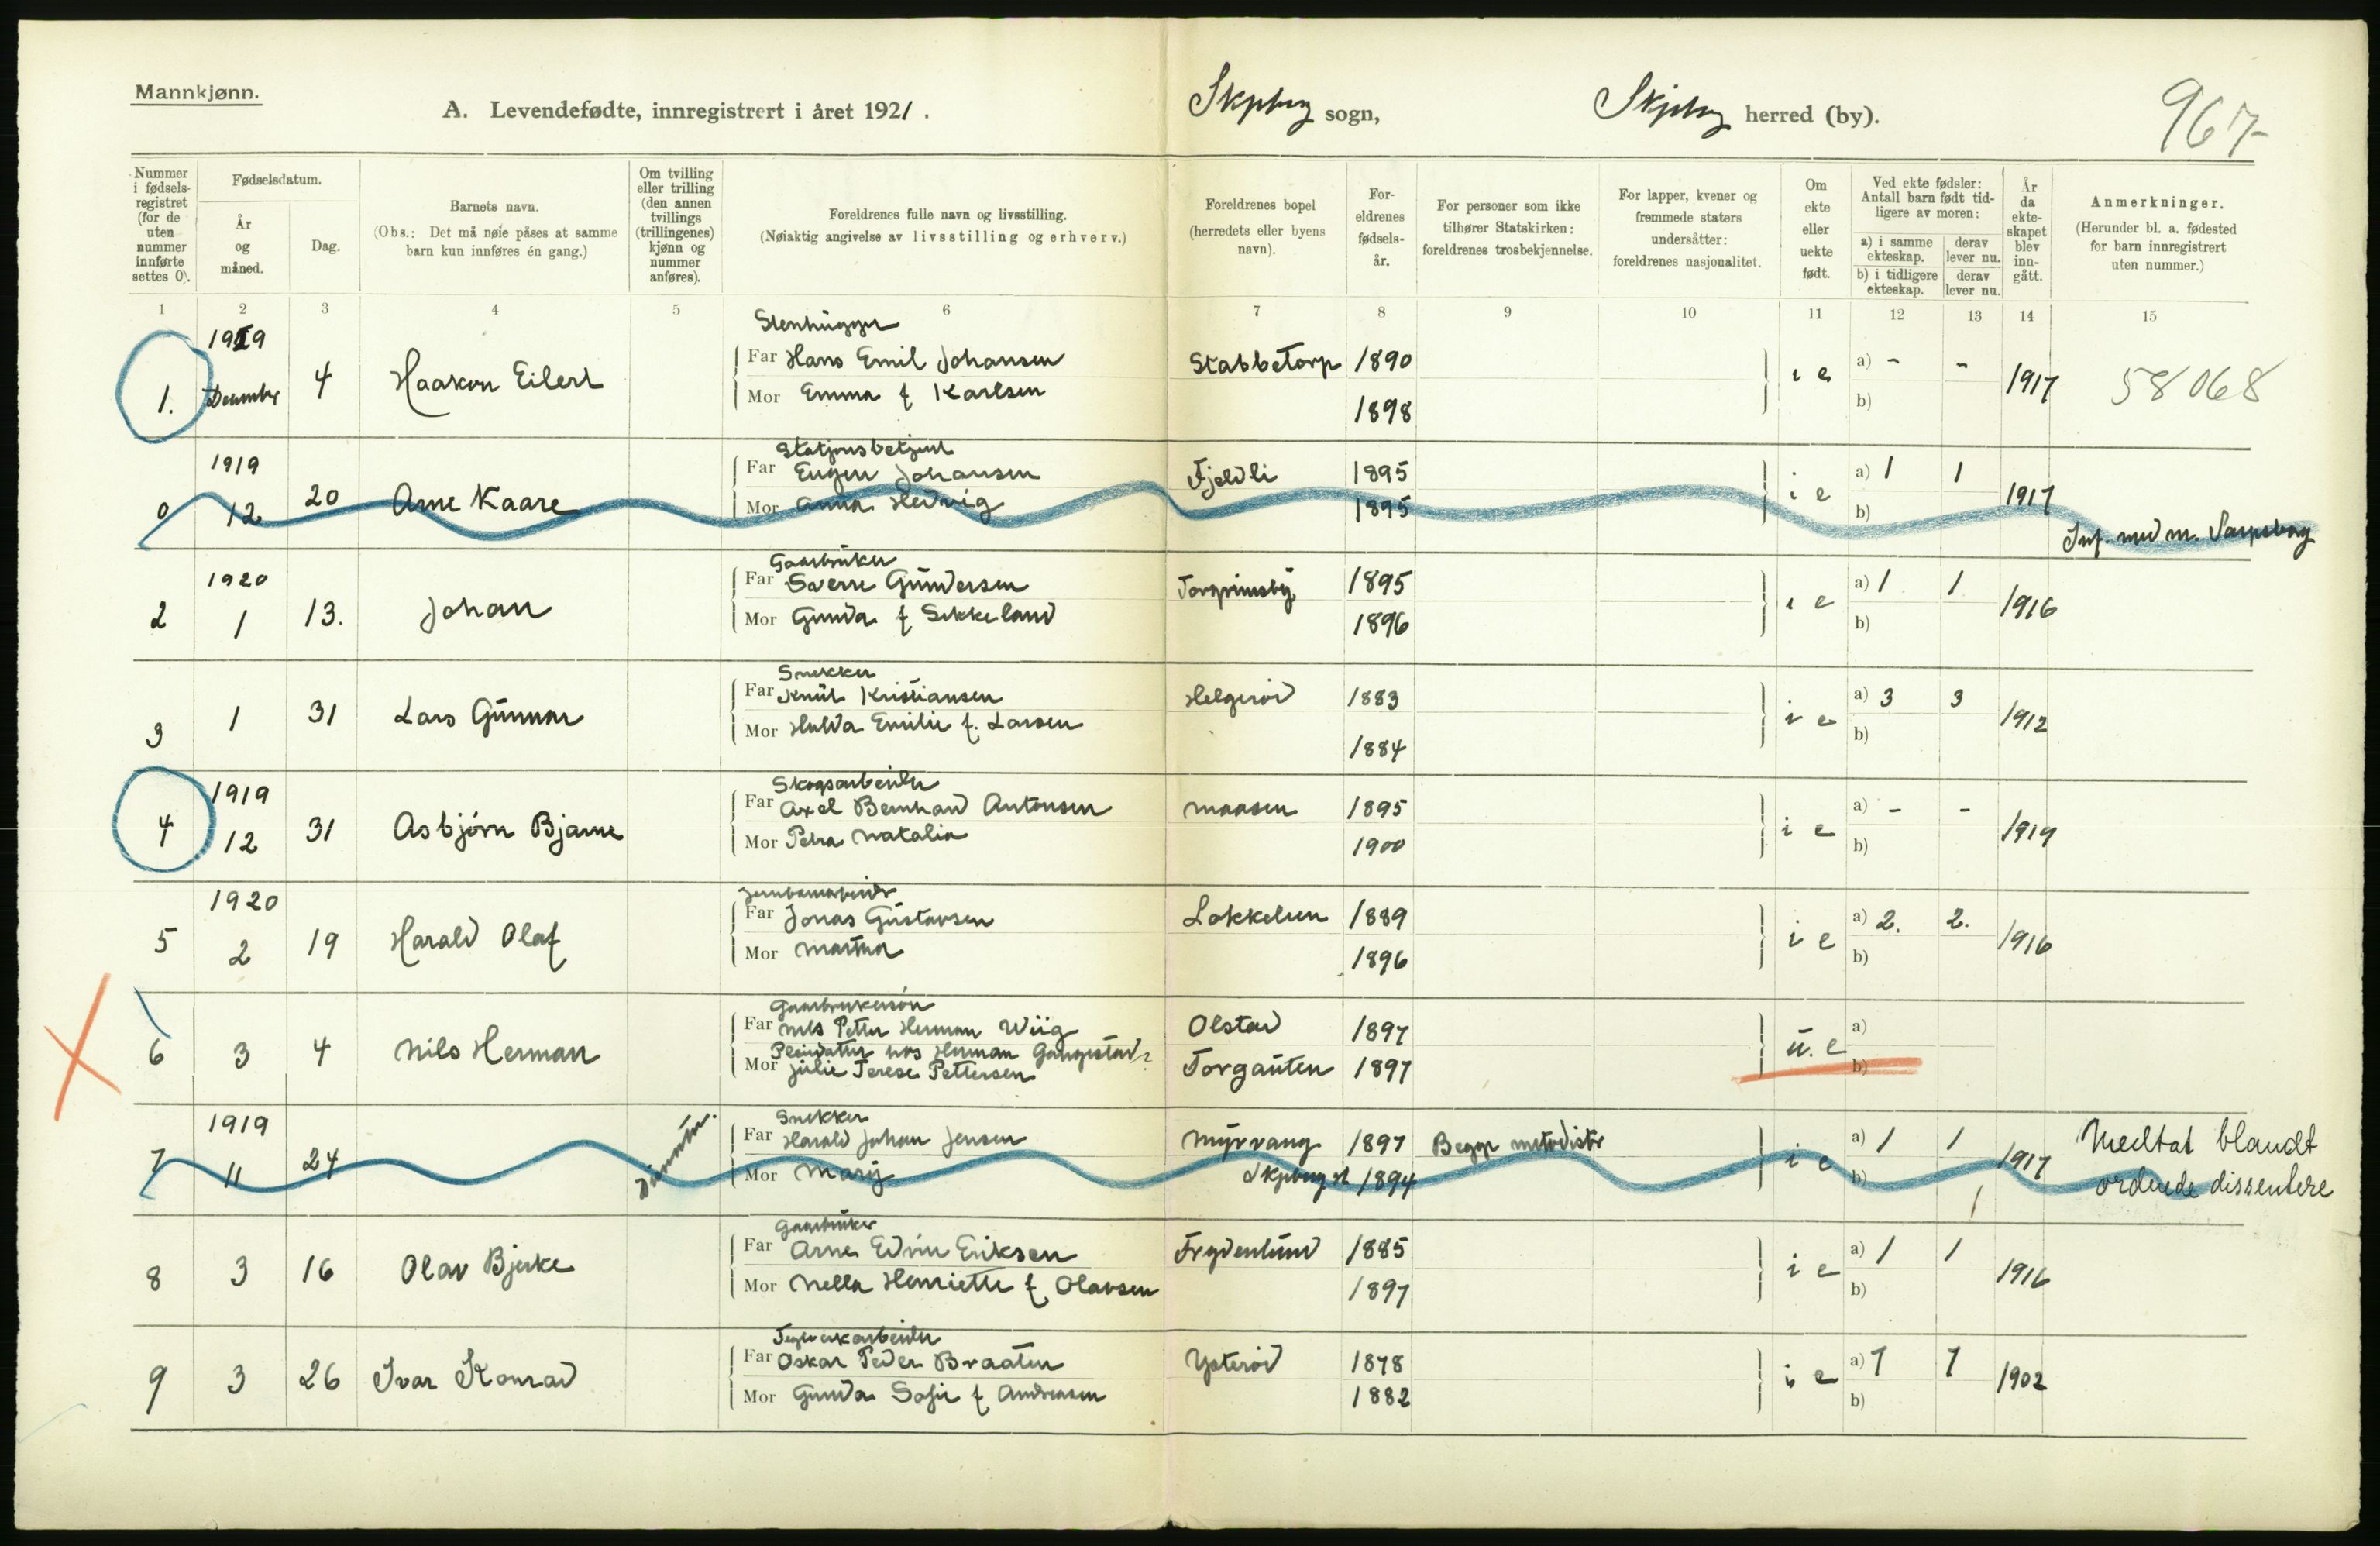 Mannkjønn.
A. Levendefødte, innregistrert i året 1921.
Skjeberg sogn, Skjeberg herred (by).
967
Nummer i fødsels-registret (for de uten nummer innførte settes 0).
Fødselsdatum.
År og måned.
Dag.
Barnets navn.
(Obs.: Det må nøie påses at samme barn kun innføres én gang.)
Om tvilling eller trilling (den annen tvillings (trillingenes) kjønn og nummer anføres).
Foreldrenes fulle navn og livsstilling.
(Nøiaktig angivelse av livsstilling og erhverv.)
Foreldrenes bopel (herredets eller byens navn).
For-eldrenes fødsels-år.
For personer som ikke tilhører Statskirken: foreldrenes trosbekjennelse.
For lapper, kvener og fremmede staters undersåtter: foreldrenes nasjonalitet.
Om ekte eller uekte født.
Ved ekte fødsler: Antall barn født tid-ligere av moren:
a) i samme ekteskap. derav lever nu.
b) i tidligere ekteskap. derav lever nu.
År da ekte-skapet blev inn-gått.
Anmerkninger.
(Herunder bl. a. fødested for barn innregistrert uten nummer.)
1 2 3 4 5 6 7 8 9 10 11 12 13 14 15
1919 Stenhugger
1. December 4 Haakon Eilert Far Hans Emil Johansen Stabbetorp 1890 i e a) - - 1917 58068
Mor Emma f Karlsen 1898 b)
1919 Stationsbetjent
0 12 20 Arne Kaare Far Eugen Johansen Fjeldli 1895 i e a) 1 1 1917
Mor Anna Hedvig 1895 b) Inf. med m. Sarpsborg
1920 Gaardbruker
2 1 13. Johan Far Sverre Gundersen 1895 i e a) 1 1 1916
Mor Gunda f Sekkeland 1896 b)
Snekker
3 1 31 Lars Gunnar Far Knut Kristiansen Helgerød 1883 i e a) 3 3 1912
Mor Hulda Emilie f. Larsen 1884 b)
1919 Skogsarbeider
4 12 31 Asbjørn Bjarne Far Axel Bernhard Antonsen Maasen 1895 i e a) - - 1919
Mor Petra Natalia 1900 b)
1920 Jernbanearbeider
5 2 19 Harald Olaf Far Jonas Gustavsen 1889 i e a) 2. 2. 1916
Mor Martha 1896 b)
Gaardbrukersøn
6 3 4 Nils Herman Far Nils Petter Herman Wiig Olstad 1897 u. e a)
Pleiedatter hos Herman
Mor Julie Terese Pettersen Torgauten 1897 b)
1919 Snekker
7 11 24 Far Harald Johan Jensen Myrvang 1897 Begge metodister i e a) 1 1 1917 Medtat blandt
Mor Mary Skjeberg st 1894 b) 1 ordnede dissentere
Gaardbruker
8 3 16 Olav Bjerke Far Arne Edvin Eriksen Frydenlund 1885 i e a) 1 1 1916
Mor Nella Henriette f Olavsen 1897 b)
Teglverkarbeider
9 3 26 Ivar Konrad Far Oskar Peder Braaten Ysterød 1878 i e a) 7 7 1902
Mor Gunda Sofie f Andreasen 1882 b)